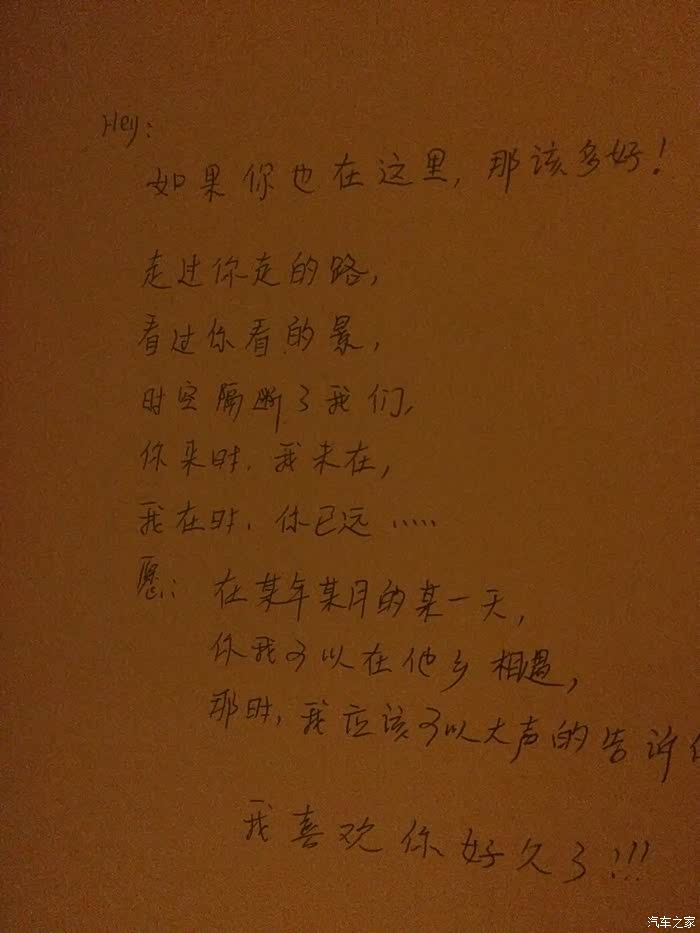 Hey:
如果你也在这里，那该多好！
走过你走的路，
看过你看的景，
时空隔断了我们，
你来时，我未在，
我在时，你已远……
愿：在某年某月的某一天，
你我可以在他乡相遇，
那时，我应该可以大声的告诉
我喜欢你好久了!!!
汽车之家